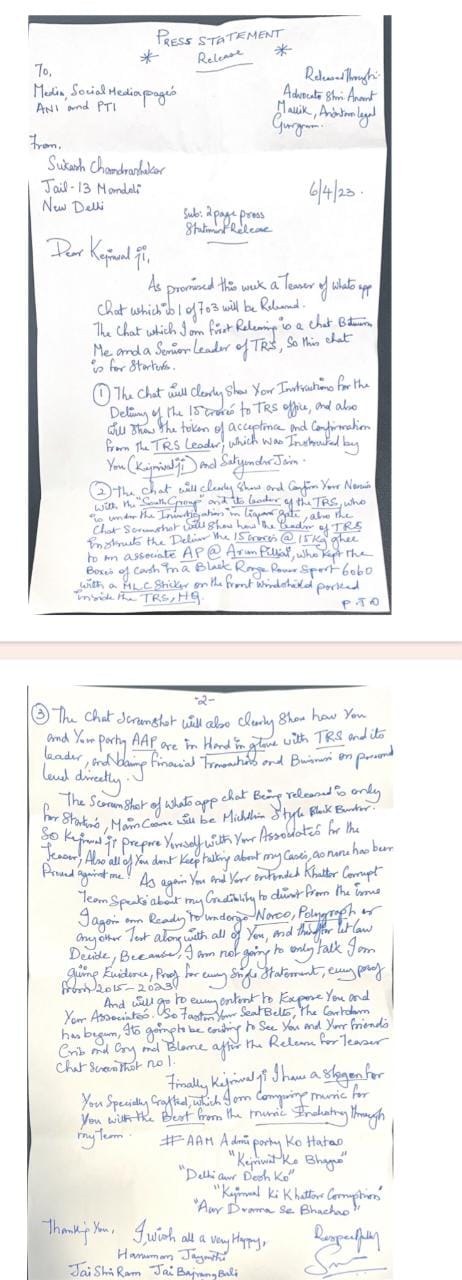 PRESS STATEMENT
* Release *
To,
Media, Social Media pages
ANI and PTI
Released Through:
Advocate Shri Anant
Mallik, Legal
Gurgram.
From,
Sukash Chandrashekar
Jail-13 Mandoli
New Delhi
6/4/23.
Sub: 2 page press
Statment Release
Dear Kejriwal ji,
As promised this week a Teaser of whats app
Chat which is 1 of 703 will be Released.
The Chat which I am first Releasing is a chat Between
Me and a Senior Leader of TRS, So this chat
is for Starters.
① The Chat will clearly Show Your Instructions for the
Delivery of the 15 crores to TRS office, and also
will Show the token of acceptance and Confirmation
from the TRS Leader, which was Instructed by
You (Kejriwal ji) and Satyendar Jain.
② The Chat will clearly Show and Confirm Your Nexus
with the "South Group" and its leader of the TRS, who
is under the Investigation in liquor gate, also the
Chat Screenshot will Show how the Leader of TRS
Instructs the Deliver the 15 crores @ 15 Kg ghee
to an associate AP @ Arun Pillai, who kept the
Boxes of cash in a Black Range Rover Sport 6060
with a MLC Sticker on the front windshield parked
inside the TRS, HQ.
P.T.O
-2-
③ The Chat Screenshot will also clearly Show how You
and Your party AAP are in Hand in glove with TRS and its
leader, and doing Financial Transactions and Business on personal
level directly.
The Screenshot of whats app chat Being released is only
for Starters, Main Course will be Michelin Style Black Bunker.
So Kejriwal ji prepare Yourself with Your Associates for the
Teaser, Also all of You dont Keep talking about my Cases, as none has been
Proved against me. As again You and Your extended Khattar Corrupt
Team Speaks about my Credibility to divert from the issue
I again am Ready to undergo Narco, Polygraph or
any other Test along with all of You, and thereafter let law
Decide, Because, I am not going to only talk I am
giving Evidence, Proof for every Single Statement, every proof
from 2015-2023
And will go to every extent to Expose You and
Your Associates. So fasten Your Seat Belts, the Countdown
has begun, Its going to be exciting to See You and Your friends
Crib and Cry and Blame after the Release for Teaser
Chat Screen Shot no 1.
Finally Kejriwal ji I have a slogen for
You Specially Crafted, which I am Composing music for
You with the Best from the music Industry through
my Team.
# AAM Admi party Ko Hatao
"Kejriwal Ko Bhagao"
"Delhi aur Desh Ko"
"Kejriwal ki Khattar Corruption"
"Aur Drama Se Bhachao"
Thanking You, I wish all a very Happy,
Hanuman Jayanthi
Jai Shri Ram Jai Bajrang Bali
Respectfully